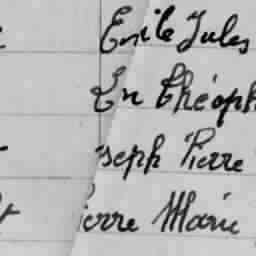 Emile Jules
En Théoph
seph Pierre
ierre Marie